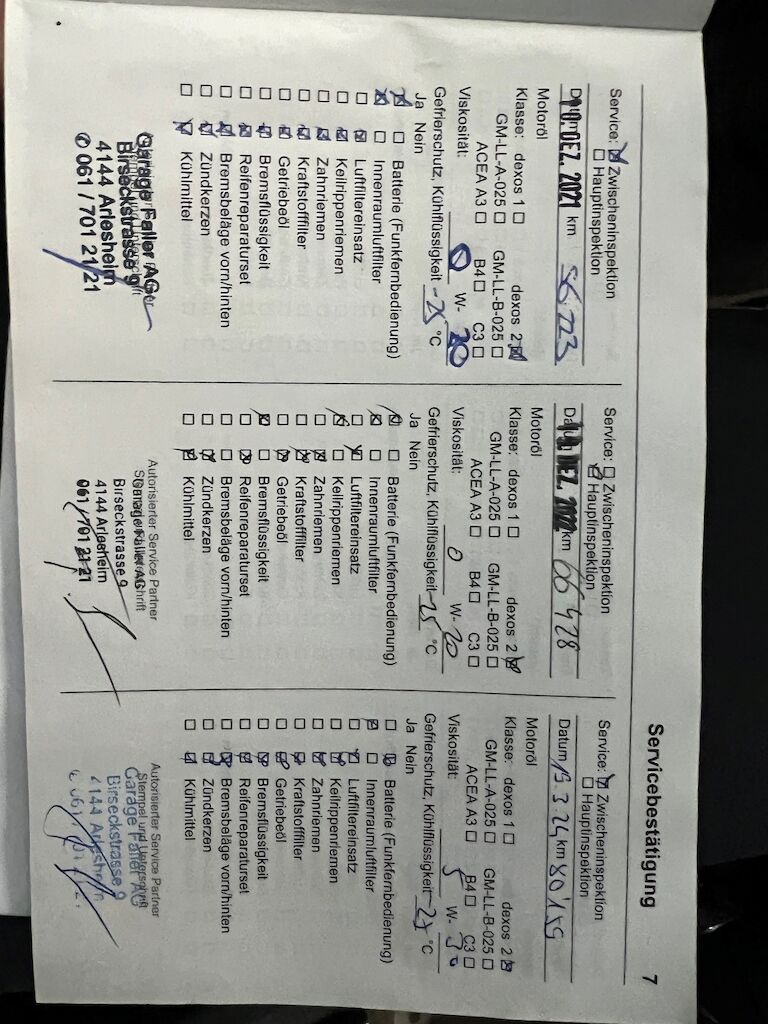 Servicebestätigung 7
Service: ☒ Zwischeninspektion
☐ Hauptinspektion
Datum 10. DEZ. 2021 km 56 223
Motoröl
Klasse: dexos 1 ☐ dexos 2 ☒
GM-LL-A-025 ☐ GM-LL-B-025 ☐
ACEA A3 ☐ B4 ☐ C3 ☐
Viskosität: 0 W- 20
Gefrierschutz, Kühlflüssigkeit -25 °C
Ja Nein
☒ ☐ Batterie (Funkfernbedienung)
☒ ☐ Innenraumluftfilter
☐ ☒ Luftfiltereinsatz
☐ ☒ Keilrippenriemen
☐ ☒ Zahnriemen
☐ ☒ Kraftstofffilter
☐ ☒ Getriebeöl
☐ ☒ Bremsflüssigkeit
☐ ☒ Reifenreparaturset
☐ ☒ Bremsbeläge vorn/hinten
☐ ☒ Zündkerzen
☐ ☒ Kühlmittel
Garage Faller AG
Birseckstrasse 9
4144 Arlesheim
✆ 061 / 701 21 21
Service: ☐ Zwischeninspektion
☒ Hauptinspektion
DEZ. 2022 km 66 428
Motoröl
Klasse: dexos 1 ☐ dexos 2 ☒
GM-LL-A-025 ☐ GM-LL-B-025 ☐
ACEA A3 ☐ B4 ☐ C3 ☐
Viskosität: 0 W- 20
Gefrierschutz, Kühlflüssigkeit -25 °C
Ja Nein
☒ ☐ Batterie (Funkfernbedienung)
☒ ☐ Innenraumluftfilter
☐ ☒ Luftfiltereinsatz
☒ ☐ Keilrippenriemen
☐ ☒ Zahnriemen
☐ ☒ Kraftstofffilter
☐ ☒ Getriebeöl
☒ ☐ Bremsflüssigkeit
☐ ☒ Reifenreparaturset
☐ ☐ Bremsbeläge vorn/hinten
☐ ☒ Zündkerzen
☐ ☒ Kühlmittel
Autorisierter Service Partner
Garage Faller AG
Birseckstrasse 9
4144 Arlesheim
061 / 701 21 21
Service: ☒ Zwischeninspektion
☐ Hauptinspektion
Datum 13.3.24 km 80'155
Motoröl
Klasse: dexos 1 ☐ dexos 2 ☒
GM-LL-A-025 ☐ GM-LL-B-025 ☐
ACEA A3 ☐ B4 ☐ C3 ☐
Viskosität: 5 W- 30
Gefrierschutz, Kühlflüssigkeit -27 °C
Ja Nein
☐ ☒ Batterie (Funkfernbedienung)
☒ ☐ Innenraumluftfilter
☐ ☒ Luftfiltereinsatz
☐ ☒ Keilrippenriemen
☐ ☒ Zahnriemen
☐ ☒ Kraftstofffilter
☐ ☒ Getriebeöl
☐ ☒ Bremsflüssigkeit
☐ ☒ Reifenreparaturset
☐ ☒ Bremsbeläge vorn/hinten
☐ ☒ Zündkerzen
☐ ☒ Kühlmittel
Autorisierter Service Partner
Stempel und Unterschrift
Garage Faller AG
Birseckstrasse 9
4144 Arlesheim